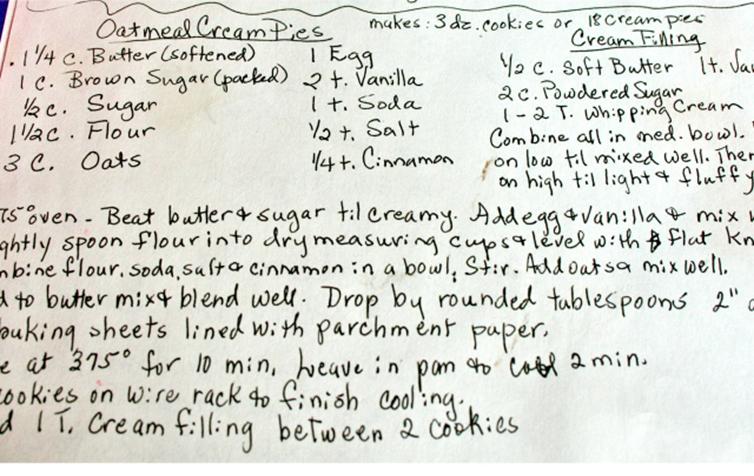 Oatmeal Cream Pies makes: 3 dz. cookies or 18 Cream pies
1 1/4 c. Butter (softened) 1 Egg Cream Filling
1 c. Brown Sugar (packed) 2 t. Vanilla 1/2 c. Soft Butter 1 t. Va
1/2 c. Sugar 1 t. Soda 2 c. Powdered Sugar
1 1/2 c. Flour 1/2 t. Salt 1 - 2 T. Whipping Cream
3 C. Oats 1/4 t. Cinnamon Combine all in med. bowl.
on low til mixed well. Then
on high til light & fluffy
75° oven - Beat butter & sugar til creamy. Add egg & vanilla & mix w
ghtly spoon flour into dry measuring cups & level with flat kn
mbine flour, soda, salt & cinnamon in a bowl. Stir. Add oats & mix well.
d to butter mix & blend well. Drop by rounded tablespoons 2"
baking sheets lined with parchment paper.
e at 375° for 10 min, Leave in pan to cool 2 min.
ookies on wire rack to finish cooling.
d 1 T. Cream filling between 2 cookies